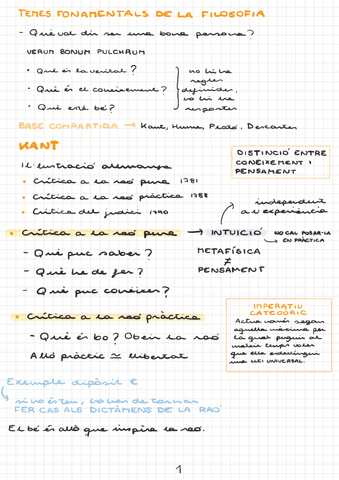 TEMES FONAMENTALS DE LA FILOSOFIA
- Què vol dir ser una bona persona?
VERUM BONUM PULCHRUM
• Què és la veritat?
• Què és el coneixement?
• Què està bé?
no hi ha
regles
definides,
no hi ha
respostes
BASE COMPARTIDA → Kant, Hume, Plató, Descartes
KANT
DISTINCIÓ ENTRE
CONEIXEMENT I
PENSAMENT
Il·lustració alemanya
• Crítica a la raó pura 1781
• Crítica a la raó pràctica 1788
• Crítica del judici 1790
independent
a l'experiència
• Crítica a la raó pura → INTUÏCIÓ NO CAL POSAR-LA
→ EN PRÀCTICA
- Què puc saber?
- Què he de fer?
- Què puc conèixer?
METAFÍSICA
≠
PENSAMENT
• Crítica a la raó pràctica
- Què és bo? Obeir la raó
Allò pràctic ≃ llibertat
IMPERATIU
CATEGÒRIC
Actua només segons
aquella màxima per
la qual puguis al
mateix temps voler
que ella esdevingui
una LLEI UNIVERSAL.
Exemple dipòsit €
si no és teu, ho has de tornar
FER CAS ALS DICTÀMENS DE LA RAÓ
El bé és allò que inspira la raó.
1